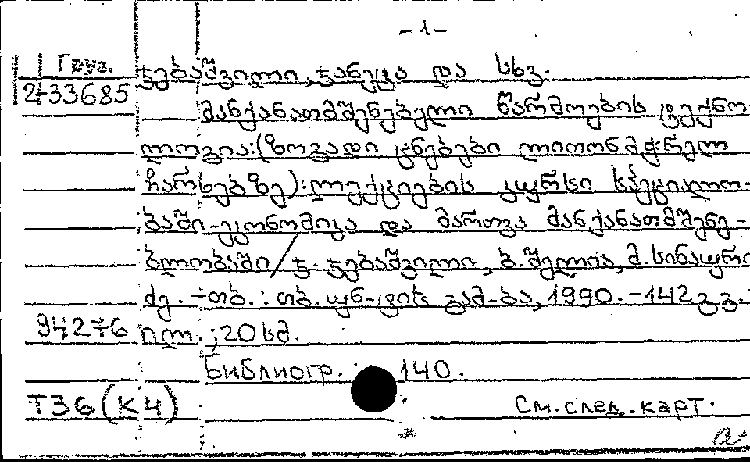 -1-
Груз.
ჭებაშვილი, ჟანეტა და სხვ.
2-33685
მანქანათმშენებელი წარმოების ტექნო
ლოგია: (ზოგადი ცნებები ლითონმჭრელ
ჩარხებზე): ლექციების კურსი სპეციალო-
ბაში-ეკონომიკა და მართვა მანქანათმშენე-
ბლობაში / ჟ. ჭებაშვილი, ბ. შელია, მ. სინაური
ძე. - თბ.: თბ. უნ-ტის გამ-ბა, 1990. - 142 გვ.
94276 ილ.; 20 სმ.
Библиогр.: 140.
Т36(К4)
См. след. карт.